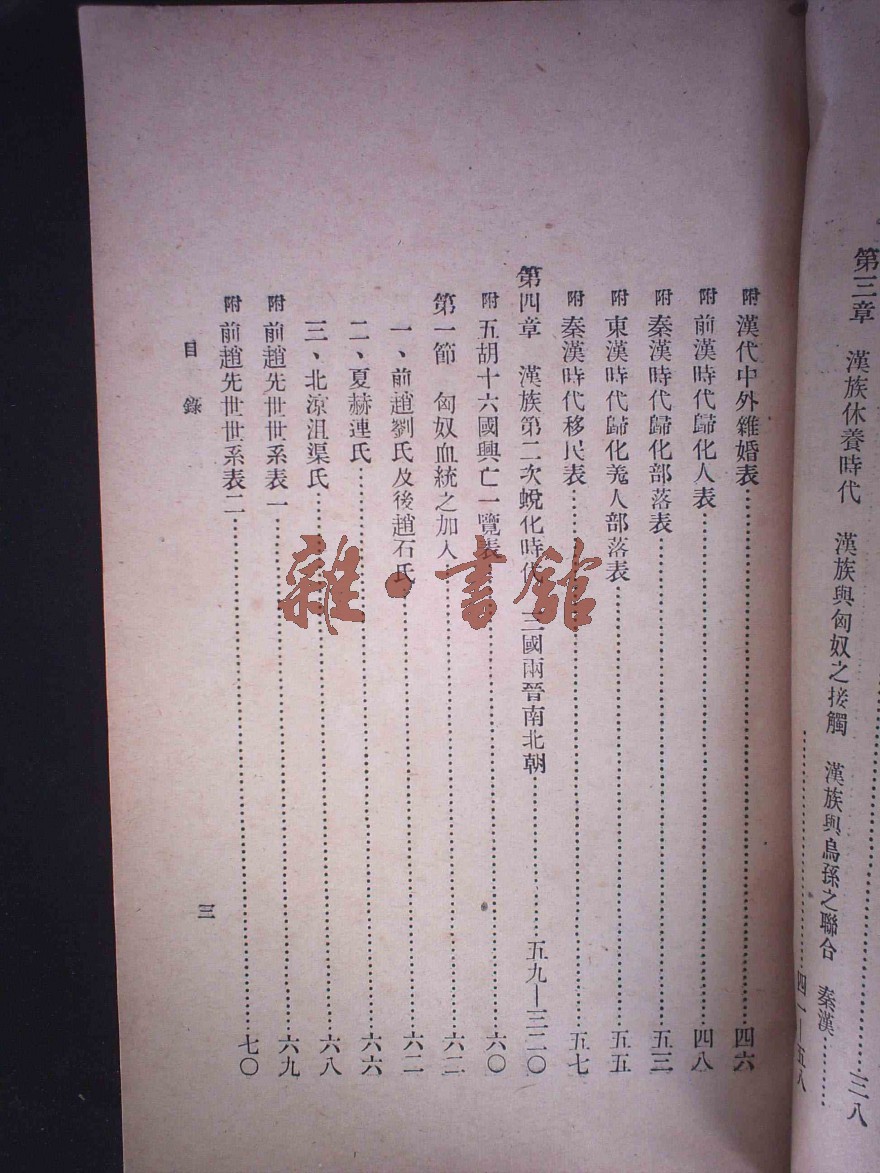 三八
第三章　漢族休養時代　漢族與匈奴之接觸　漢族與烏孫之聯合　秦漢…………
…………四一—五八
附　漢代中外雜婚表…………四六
附　前漢時代歸化人表…………四八
附　秦漢時代歸化部落表…………五三
附　東漢時代歸化羌人部落表…………五五
附　秦漢時代移民表…………五七
第四章　漢族第二次蛻化時代　三國兩晉南北朝…………五九—三二〇
附　五胡十六國興亡一覽表…………六〇
第一節　匈奴血統之加入…………六二
一、前趙劉氏及後趙石氏…………六二
二、夏赫連氏…………六六
三、北涼沮渠氏…………六八
附　前趙先世世系表一…………六九
附　前趙先世世系表二…………七〇
目錄
三
雜·書館